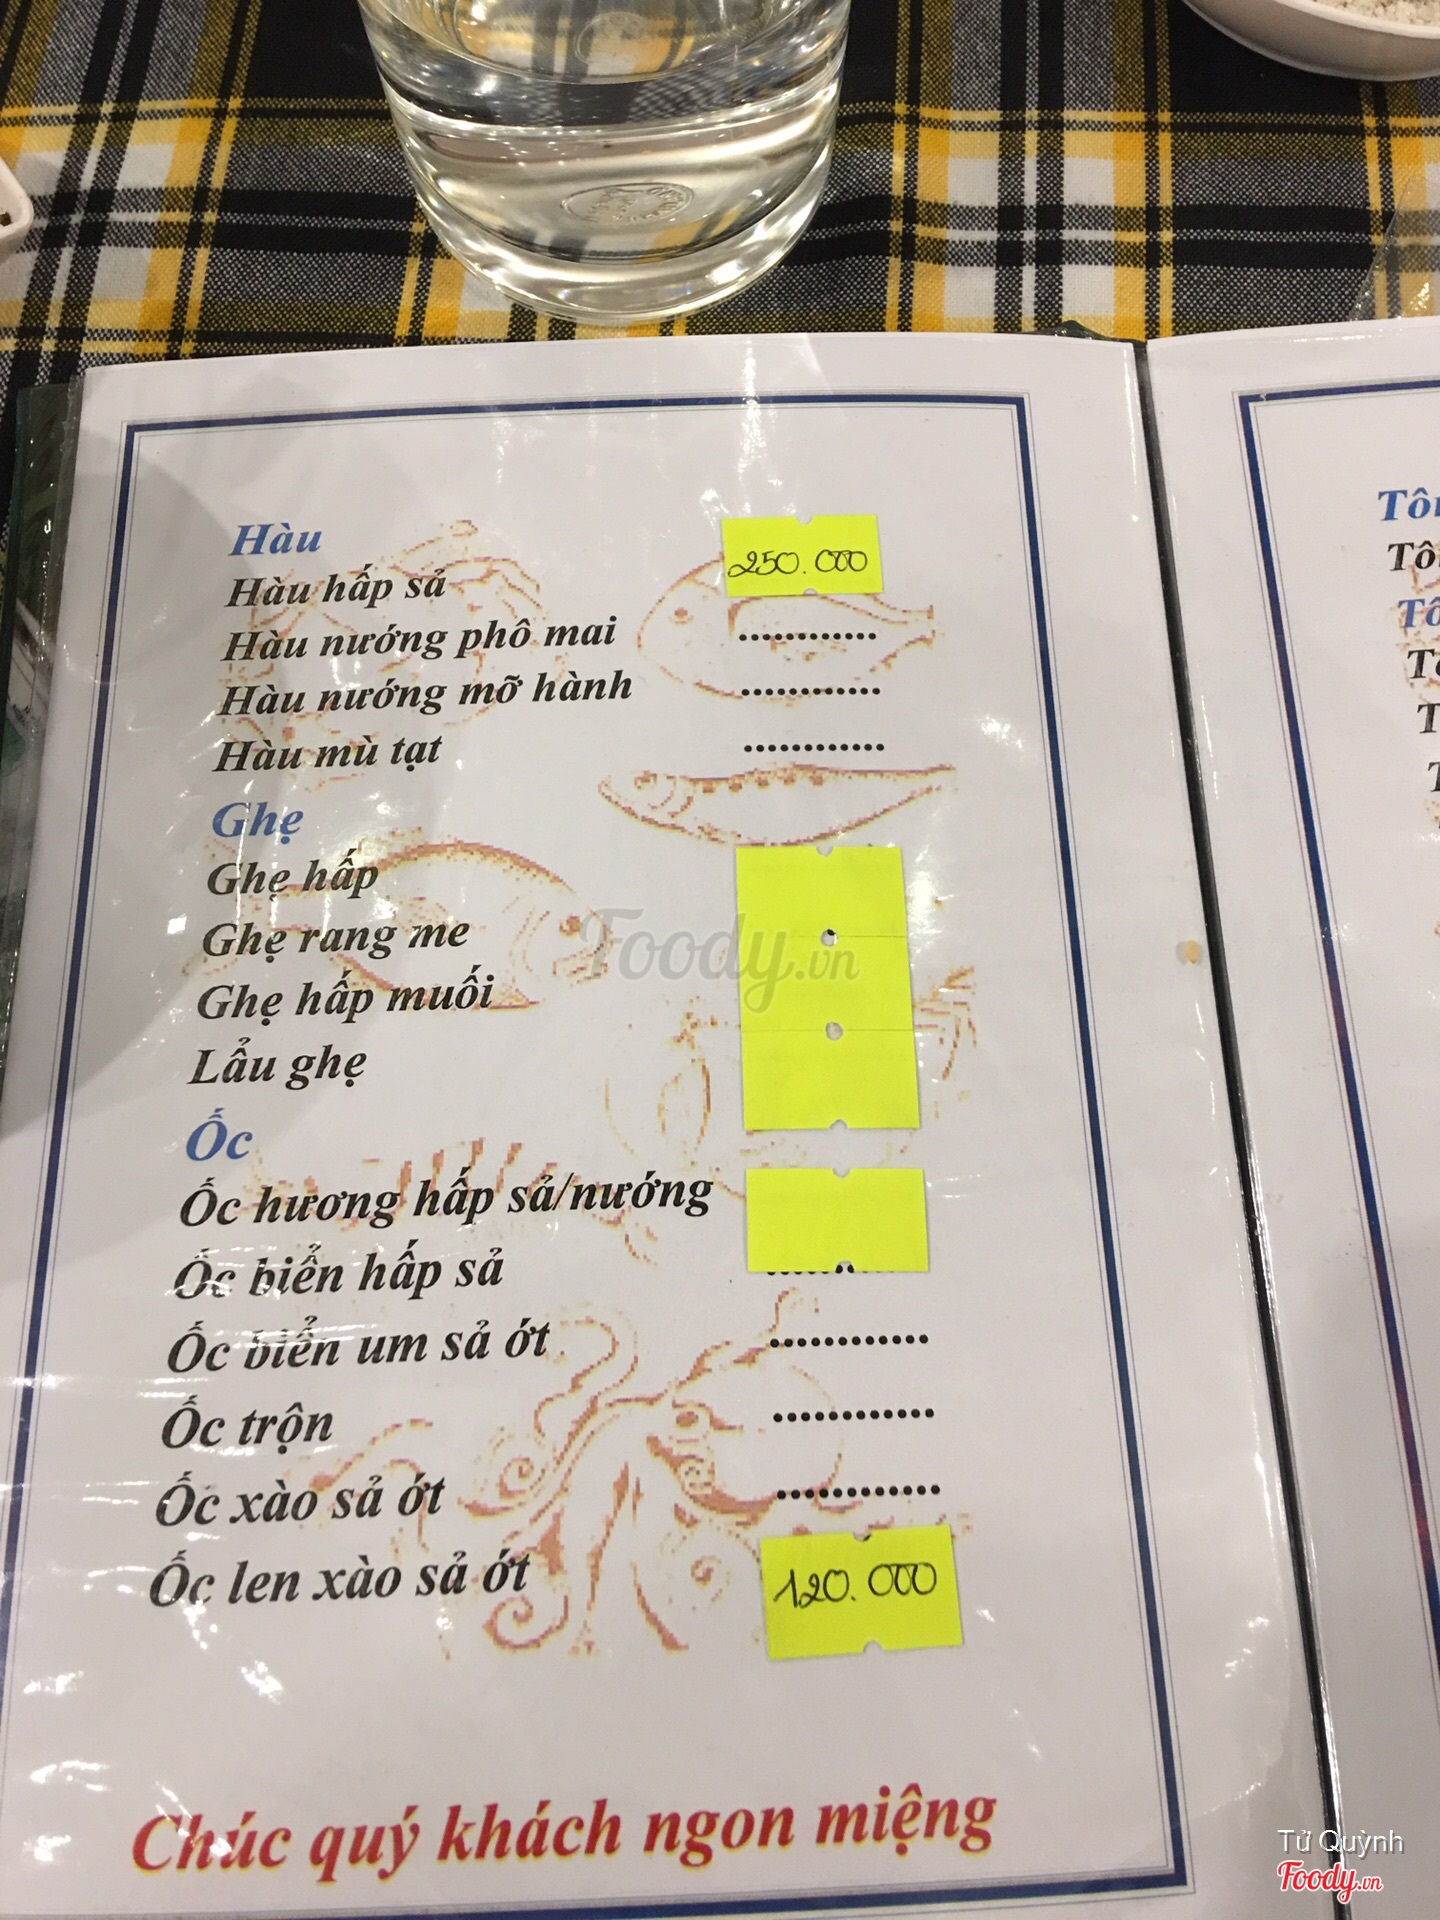 Hàu
Hàu hấp sả 250.000
Hàu nướng phô mai ............
Hàu nướng mỡ hành ............
Hàu mù tạt ............
Ghẹ
Ghẹ hấp
Ghẹ rang me
Ghẹ hấp muối
Lẩu ghẹ
Ốc
Ốc hương hấp sả/nướng
Ốc biển hấp sả
Ốc biển um sả ớt ............
Ốc trộn ............
Ốc xào sả ớt ............
Ốc len xào sả ớt 120.000
Chúc quý khách ngon miệng
Foody.vn
Tử Quỳnh
Foody.vn